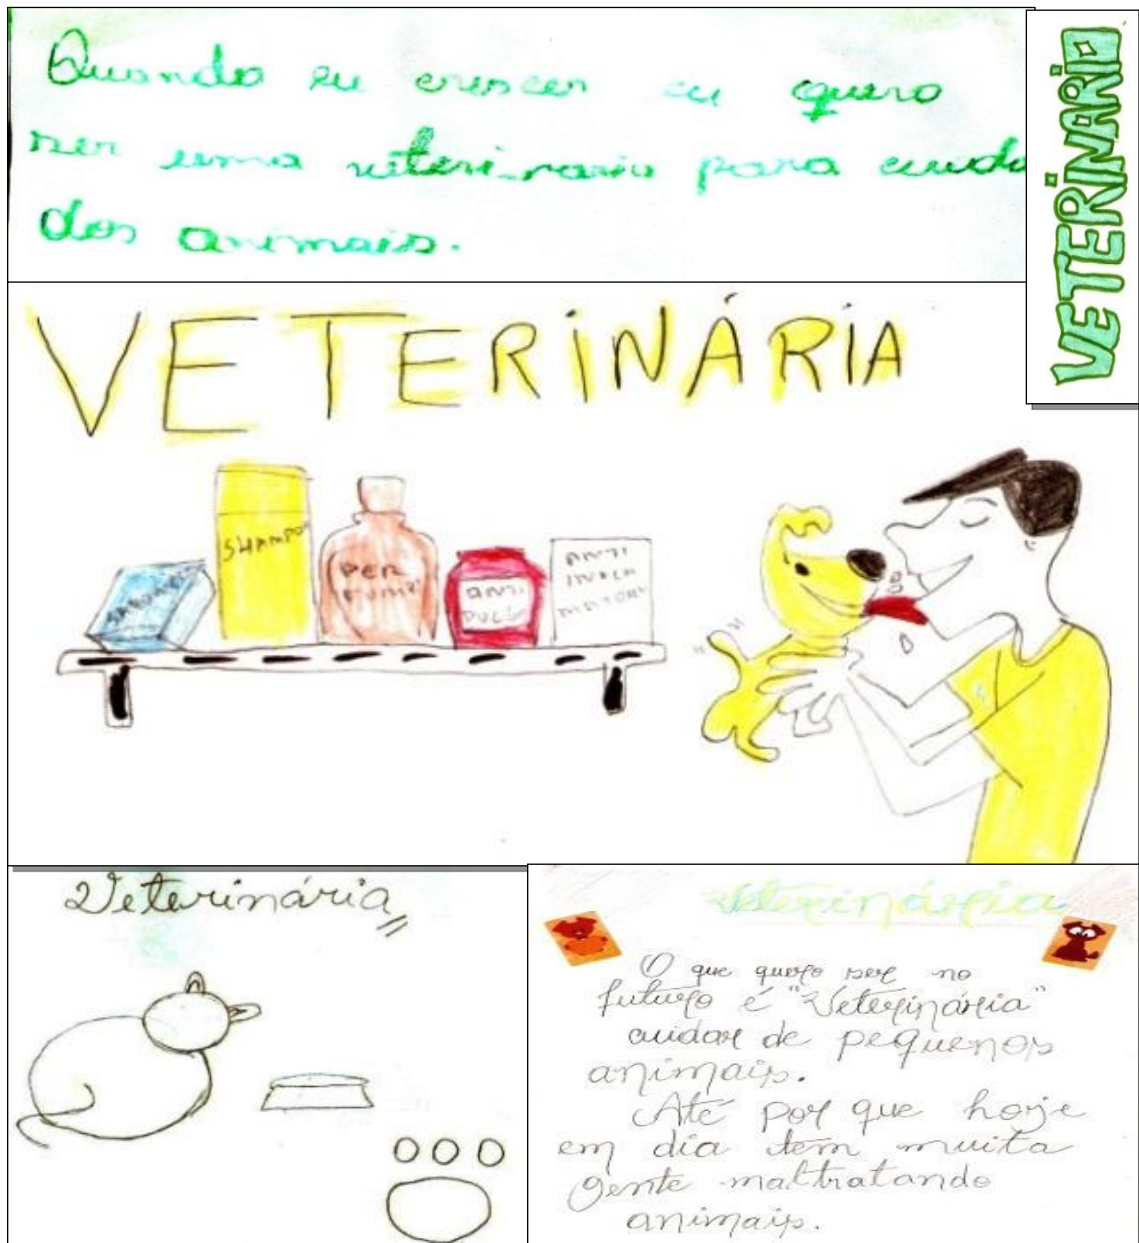 Quando eu crescer eu quero
ser uma veterinaria para cuida
dos animais.
VETERINARIO
VETERINÁRIA
SHAMPOO
PER
FUME
ANTI
PULG
ANTI
Veterinária
Veterinária
O que quero ser no
futuro é "Veterinária"
cuidar de pequenos
animais.
Até por que hoje
em dia tem muita
gente maltratando
animais.